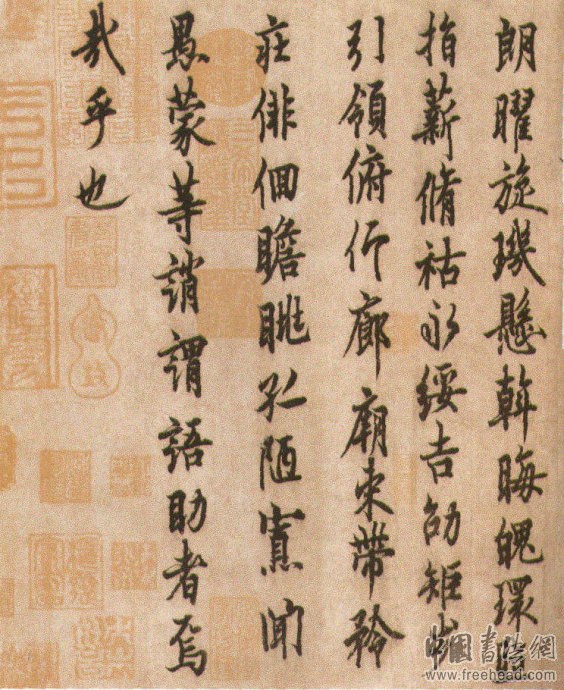 朗曜旋璣懸斡晦魄環照
指薪脩祜永綏吉劭矩步
引領俯仰廊廟束帶矜
莊俳佪瞻眺孤陋寡聞
愚蒙等誚謂語助者焉
哉乎也
中國書法網
www.freehead.com